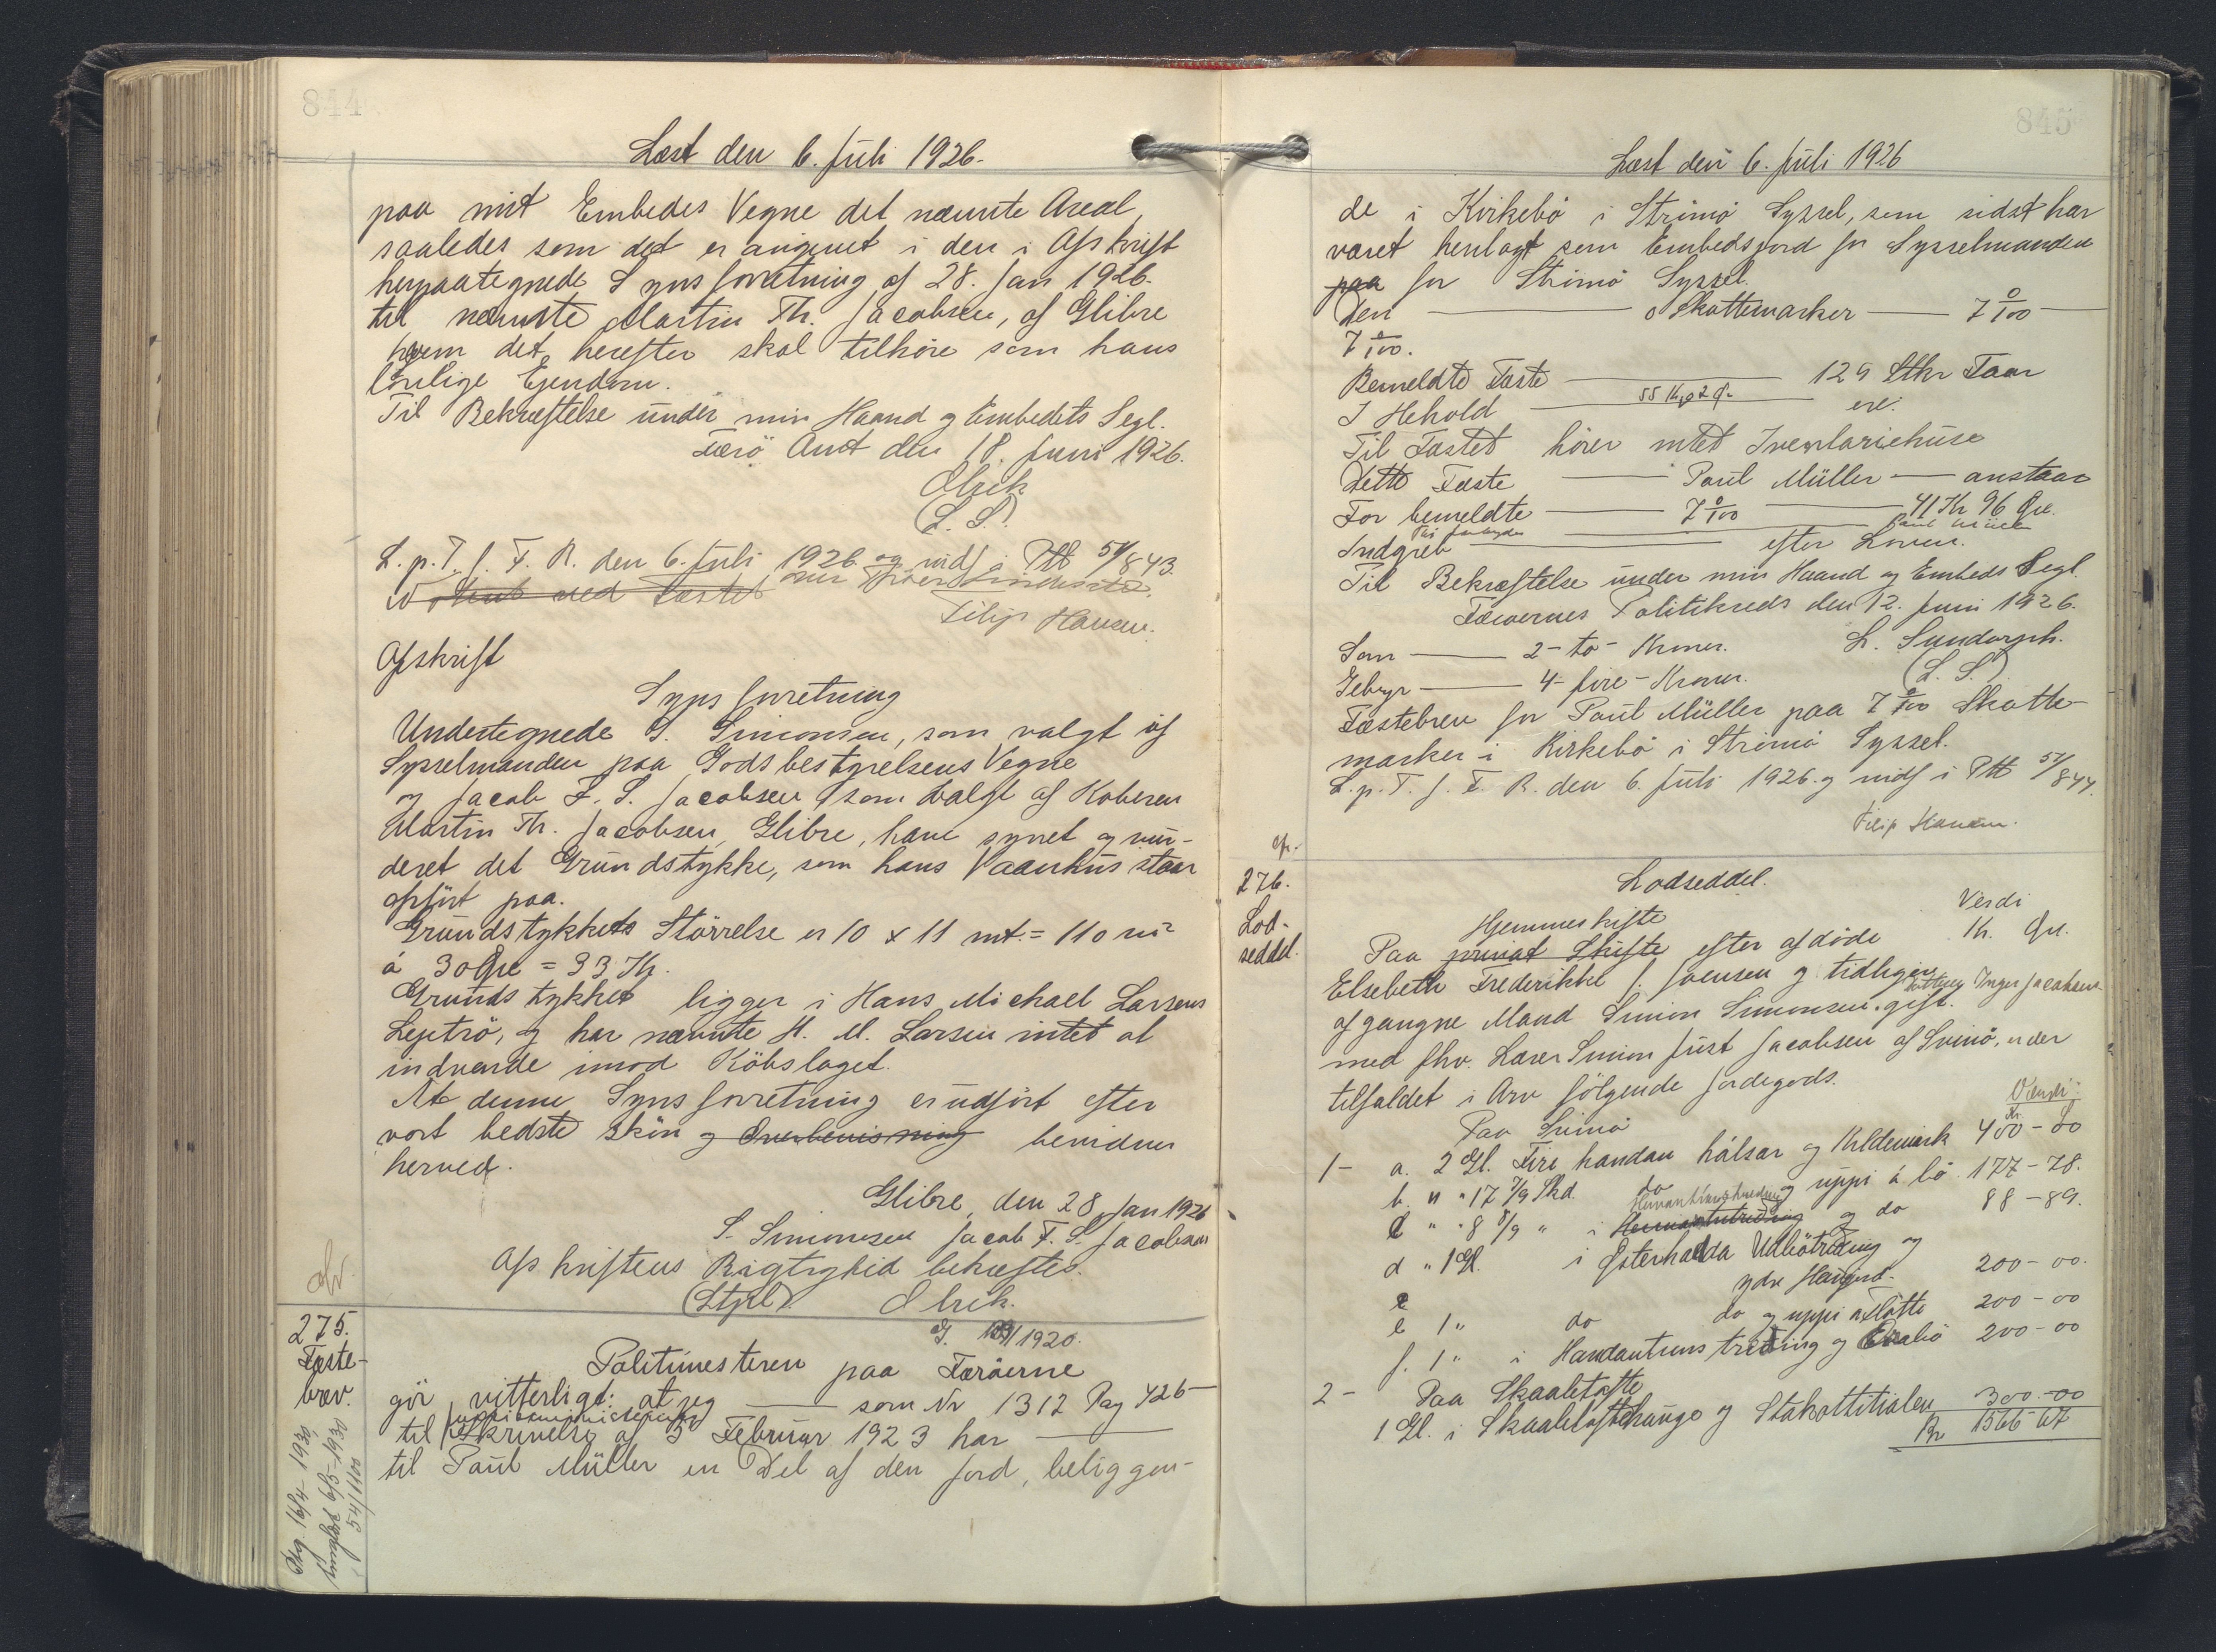 844
Læst den 6. Juli 1926.
paa mit Embedes Vegne det nævnte Areal,
saaledes som det er angivet i den i Afskrift
herpaategnede Synsforretning af 28. Jan 1926.
til nævnte Martin Th. Jacobsen, af Glibre
hvem det herefter skal tilhøre som hans
lovlige Ejendom.
Til Bekræftelse under min Haand og Embedets Segl.
Færö Amt den 18. Juni 1926.
Elrek
(L. S.)
L. p. T. f. F. R. den 6. Juli 1926 og indf i Ptb 57/843.
Filip Hansen.
Afskrift
Synsforretning
Undertegnede S. Simonsen, som valgt af
Sysselmanden paa Godsbestyrelsens Vegne
og Jacob F. S. Jacobsen som valgt af Køberen
Martin Th. Jacobsen, Glibre, have synet og vur-
deret det Grundstykke, som hans Vaanhus staar
opfört paa.
Grundstykkets Störrelse er 10 x 11 mt. = 110 m²
á 30 Øre = 33 Kr.
Grundstykket ligger i Hans Michael Larsens
Lejetrö, og har nævnte H. M. Larsen intet at
indvende imod Köbslaget.
At denne Synsforretning er udfört efter
vort bedste Skön og Overbevisning bevidner
herved.
Glibre, den 28. Jan 1926
S. Simonsen Jacob F. S. Jacobsen
Afskriftens Rigtighed bekræftes.
(Stpl) Elrek.
275.
Fæste-
brev.
G. 1920.
Politimesteren paa Færöerne
gör vitterligt: at jeg — som Nr 1312 Pag 426 —
til Skrivelse af 5 Februar 1923 har —
til Paul Müller en Del af den Jord, beliggen-
845
Læst den 6. Juli 1926
de i Kirkebö i Strömö Syssel, som sidst har
været henlagt som Embedsjord for Sysselmanden
paa for Strömö Syssel.
Den — Skattemarker — 7 0/100 —
7 0/100.
Bemeldte Fæste — 129 Stkr Faar
I Hehold — 55 Kr 2 Ø. ere.
Til Fæstet hörer intet Inventariehuse
Dette Fæste — Paul Müller — anstaar
For bemeldte — 7 0/100 — 41 Kr 96 Øre.
Indgreb — efter Loven.
Til Bekræftelse under min Haand og Embeds Segl.
Færoernes Politikreds den 12. Juni 1926.
Som — 2 - to - Kroner. L. Sundorph.
Gebyr — 4 - fire - Kroner. (L. S.)
Fæstebrev for Paul Müller paa 7 0/100 Skatte-
marker i Kirkebö i Strömö Syssel.
L. p. T. f. F. R. den 6. Juli 1926 og indf i Ptb 57/844.
Filip Hansen.
276.
Lod-
seddel.
Lodseddel.
Hjemmeskifte Verdi
Paa privat Skifte efter afdöde Kr. Øre.
Elsebeth Frederikke f. Joensen og tidligere
afgangne Mand Simon Simonsen. Datteren Inger Jacobsen gift
med fhv. Lærer Simon Just Jacobsen af Svinö, er der
tilfaldet i Arv fölgende Jordegods.
Paa Svinö Værdi:
1- a. 2 Gl. Fire handan hálsar og Keldemark 400 - 00
b. " " 17 7/9 Skd. do og uppi á bö 177 - 78.
c " " 8 8/9 " i og do 88 - 89.
d " 1 Gl. i Østerhadda Udbötriding og
ydre Haugin. 200 - 00.
e 1 " do do og uppi a Flötte 200 - 00
f. 1 " i Handantuns triding og 200 - 00
2- Paa Skaaletofte
1 Gl. i Skaaletoftehauge og 300 - 00
Kr 1566 - 67